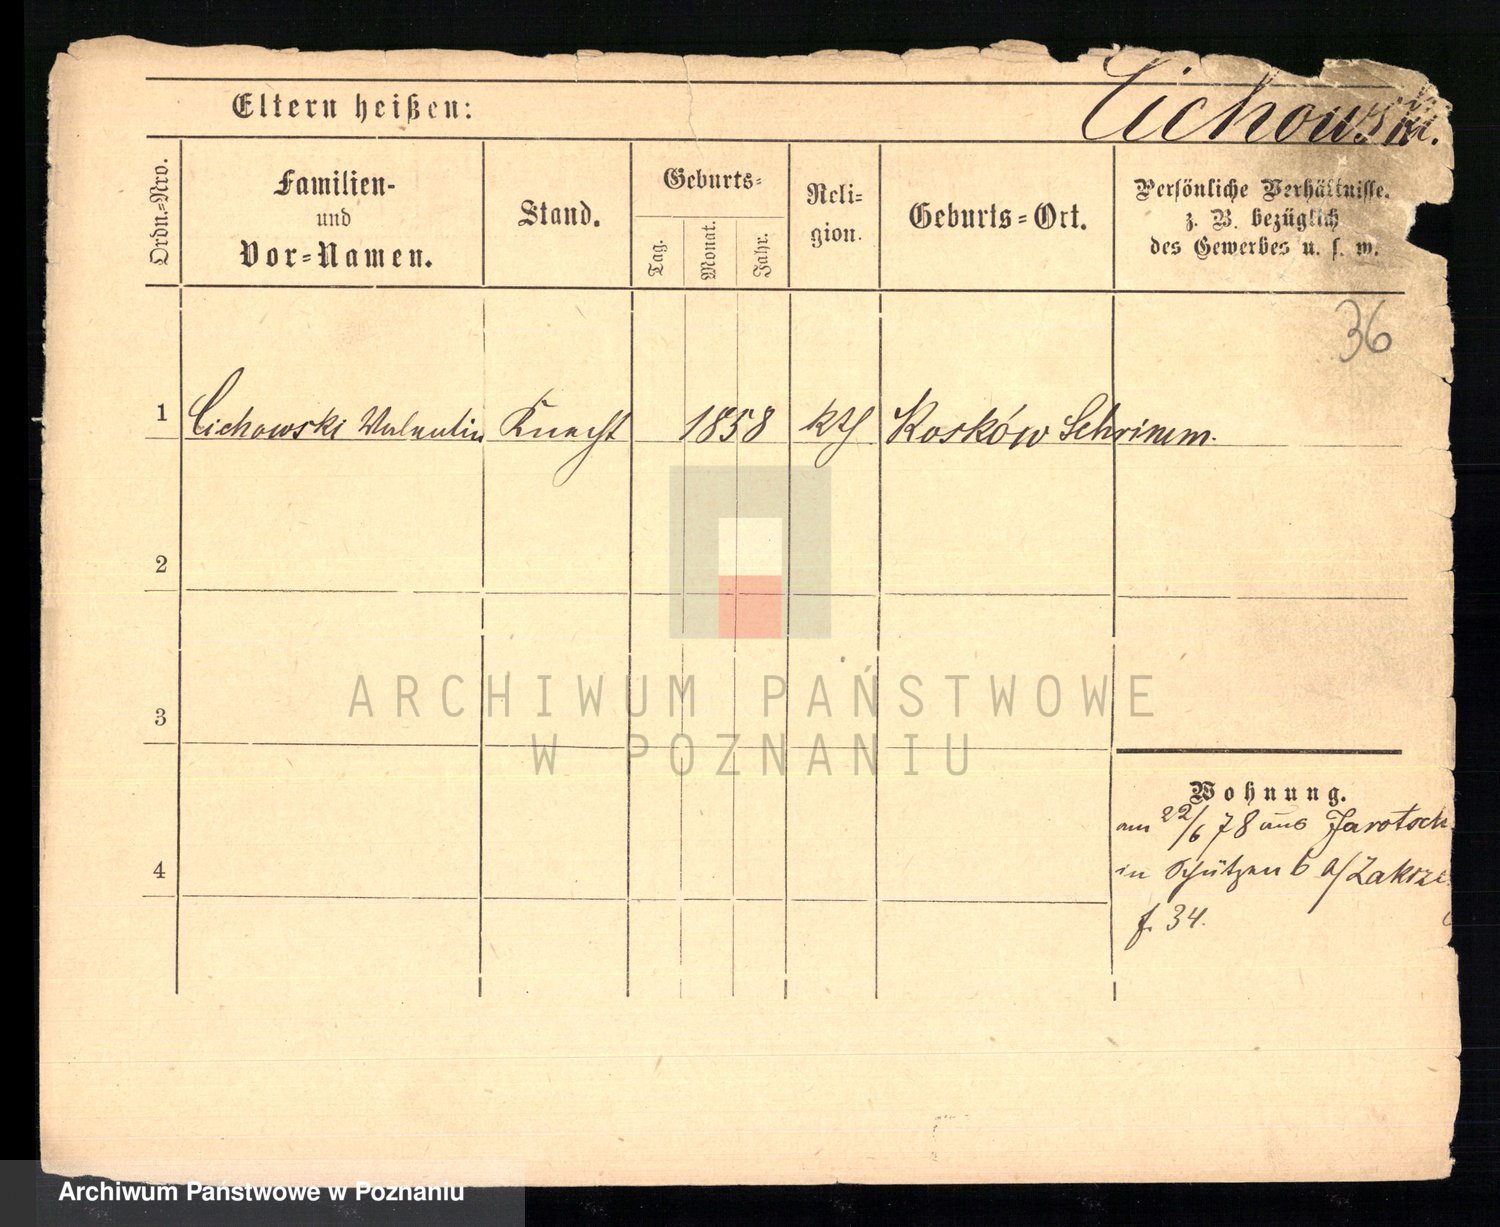 Eltern heißen:
Cichowski.
Ordn.-Nro.
Familien-
und
Vor-Namen.
Stand.
Geburts-
Tag.
Monat.
Jahr.
Reli-
gion.
Geburts-Ort.
Persönliche Verhältnisse.
z. B. bezüglich
des Gewerbes u. s. w.
36
1 Cichowski Valentin Knecht 1858 kth Kosków Schrimm.
2
3
4
Wohnung.
am 22/6 78 aus Jarotsch
in Schützen 6 a/Zakrze
f. 34.
ARCHIWUM PAŃSTWOWE
W POZNANIU
Archiwum Państwowe w Poznaniu